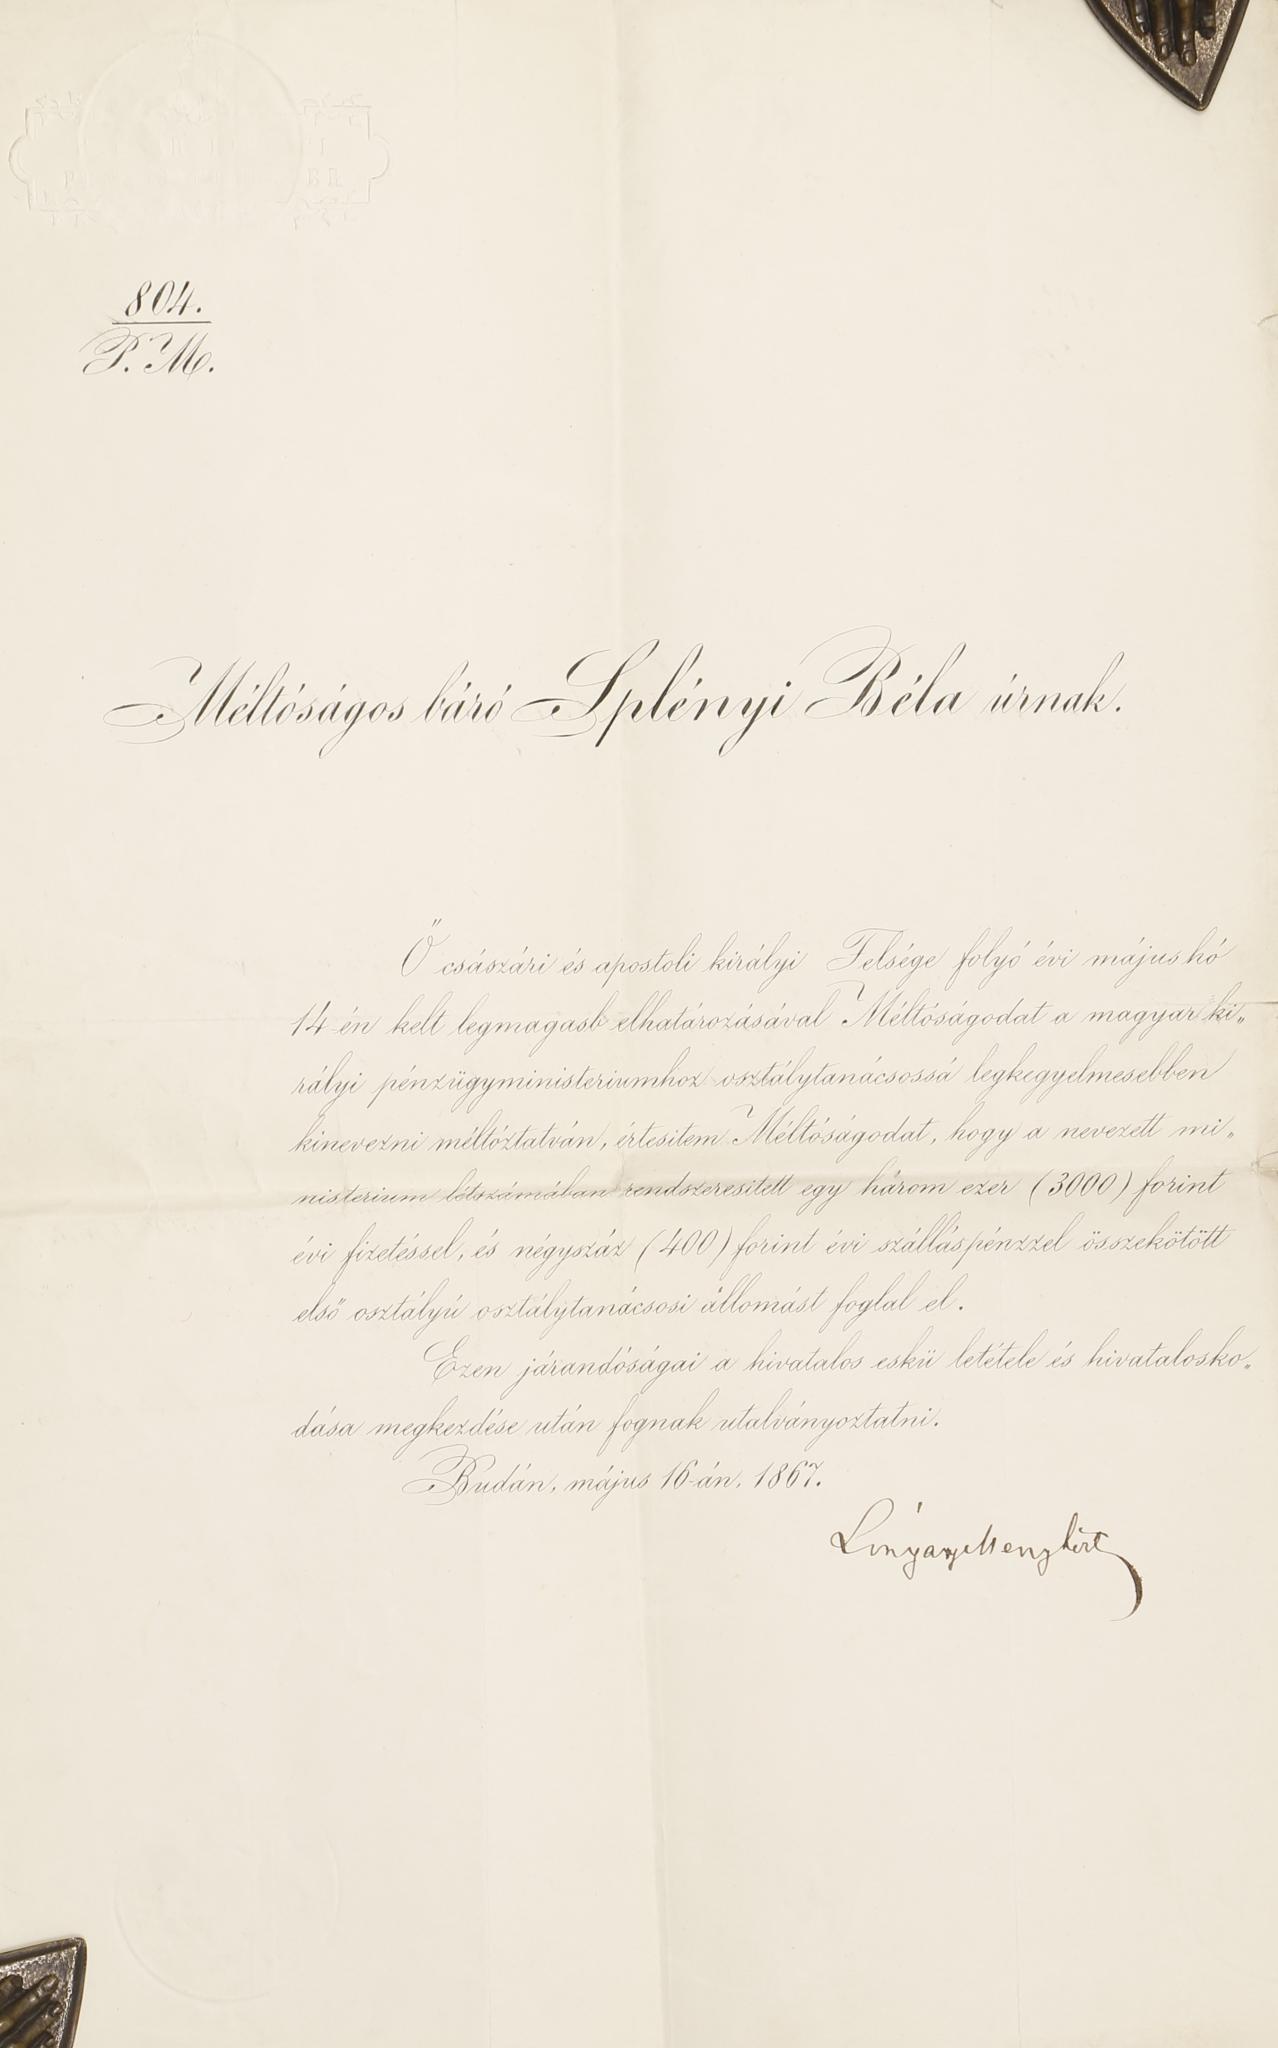 804.
P. M.
Méltóságos báró Splényi Béla úrnak.
Ő császári és apostoli királyi Felsége folyó évi május hó
14-én kelt legmagasb elhatározásával Méltóságodat a magyar ki„
rályi pénzügyministeriumhoz osztálytanácsossá legkegyelmesebben
kinevezni méltóztatván, értesitem Méltóságodat, hogy a nevezett mi„
nisterium létszámában rendszeresitett egy három ezer (3000) forint
évi fizetéssel, és négyszáz (400) forint évi szálláspénzzel összekötött
első osztályú osztálytanácsosi állomást foglal el.
Ezen járandóságai a hivatalos eskü letétele és hivatalosko„
dása megkezdése után fognak utalványoztatni.
Budán, május 16-án, 1867.
Lónyay Menyhért